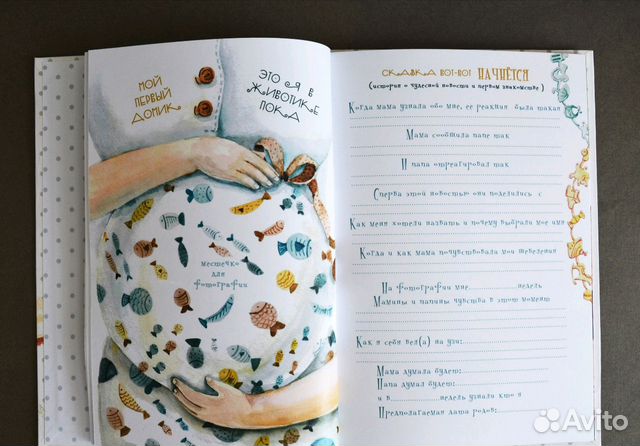 МОЙ
ПЕРВЫЙ
ДОМИК
ЭТО Я В
ЖИВОТИКЕ
ПОКА
местечко
для
фотографии
СКАЗКА ВОТ-ВОТ НАЧНЁТСЯ
(история о чудесной новости и первом знакомстве)
Когда мама узнала обо мне, ее реакция была такая
Мама сообщила папе так
И папа отреагировал так
Сперва этой новостью они поделились с
Как меня хотели назвать и почему выбрали мое имя
Когда и как мама почувствовала мои шевеления
На фотографии мне..............недель
Мамины и папины чувства в этот момент
Как я себя вел(а) на узи:
Мама думала будет:
Папа думал будет:
и в..............неделю узнали кто я
Предполагаемая дата родов:
Avito